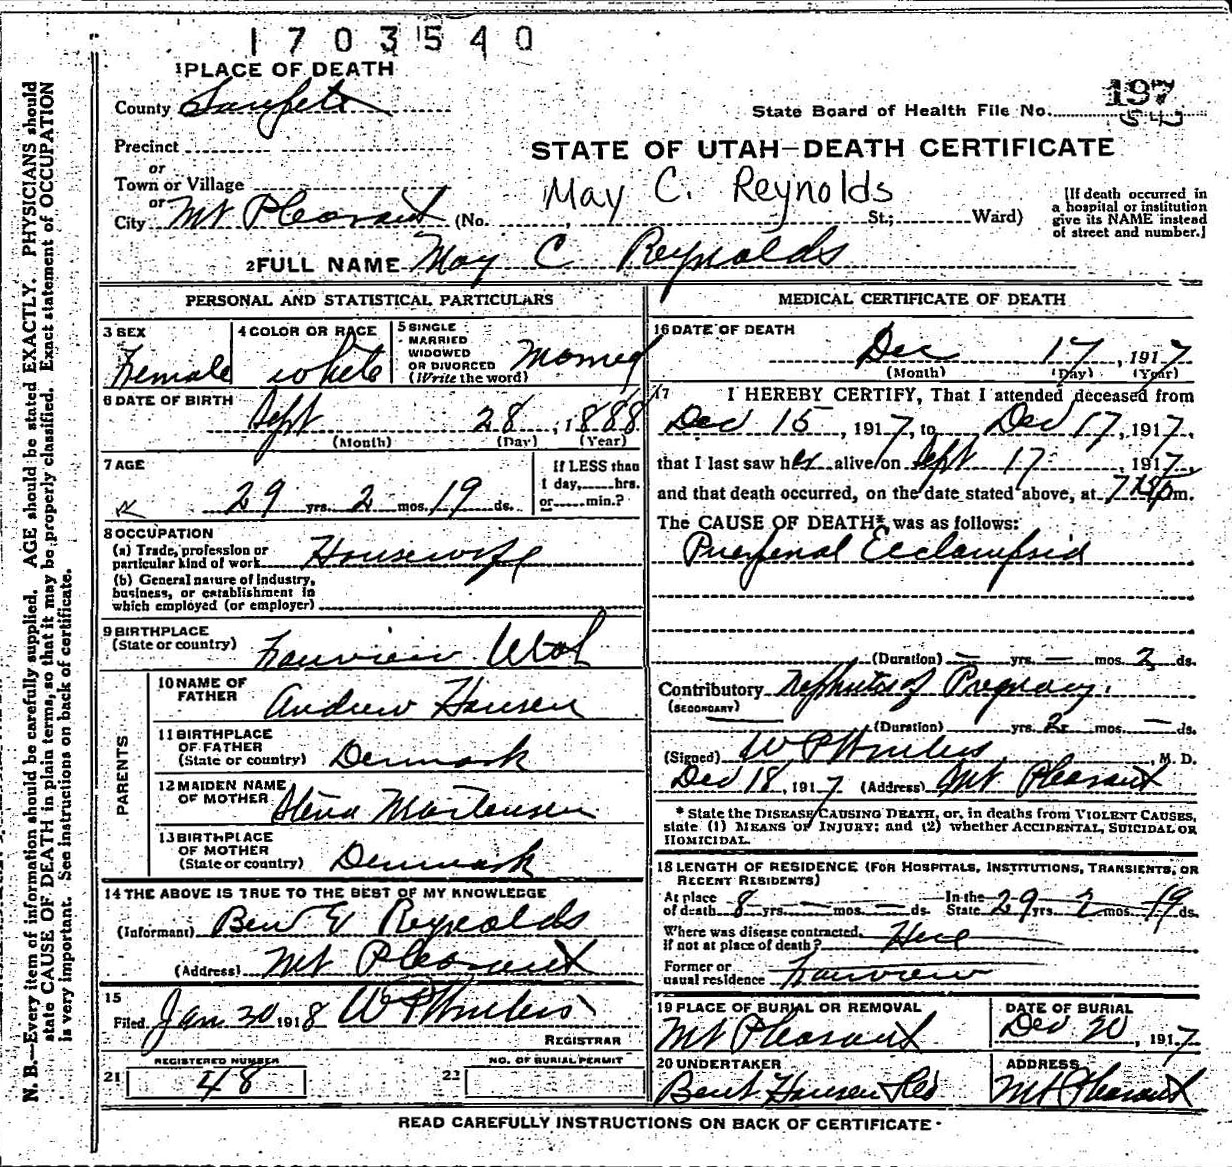 1703540
1 PLACE OF DEATH
County Sanpete
State Board of Health File No. 197
Precinct
or
Town or Village
or
City Mt Pleasant (No. St.; Ward)
STATE OF UTAH—DEATH CERTIFICATE
May C. Reynolds
[If death occurred in
a hospital or institution
give its NAME instead
of street and number.]
2 FULL NAME May C Reynolds
PERSONAL AND STATISTICAL PARTICULARS
3 SEX Female
4 COLOR OR RACE white
5 SINGLE
MARRIED
WIDOWED
OR DIVORCED
(Write the word) Married
6 DATE OF BIRTH
Sept 28, 1888
(Month) (Day) (Year)
7 AGE
29 yrs. 2 mos. 19 ds.
If LESS than
1 day, hrs.
or min.?
8 OCCUPATION
(a) Trade, profession or
particular kind of work Housewife
(b) General nature of industry,
business, or establishment in
which employed (or employer)
9 BIRTHPLACE
(State or country) Fairview Utah
PARENTS
10 NAME OF
FATHER Andrew Hansen
11 BIRTHPLACE
OF FATHER
(State or country) Denmark
12 MAIDEN NAME
OF MOTHER Stena Mortensen
13 BIRTHPLACE
OF MOTHER
(State or country) Denmark
14 THE ABOVE IS TRUE TO THE BEST OF MY KNOWLEDGE
(Informant) Ben E Reynolds
(Address) Mt Pleasant
15
Filed Jan 20 1918 W P Winters
REGISTRAR
REGISTERED NUMBER
21 48
NO. OF BURIAL PERMIT
22
MEDICAL CERTIFICATE OF DEATH
16 DATE OF DEATH
Dec 17, 1917
(Month) (Day) (Year)
17 I HEREBY CERTIFY, That I attended deceased from
Dec 15, 1917, to Dec 17, 1917,
that I last saw her alive on Sept 17, 1917,
and that death occurred, on the date stated above, at m.
The CAUSE OF DEATH* was as follows:
Puerperal Ecclampsia
(Duration) — yrs. — mos. 2 ds.
Contributory Nephritis of Pregnacy.
(SECONDARY)
(Duration) yrs. 2 mos. — ds.
(Signed) W P Winters, M. D.
Dec 18, 1917 (Address) Mt Pleasant
* State the DISEASE CAUSING DEATH, or, in deaths from VIOLENT CAUSES,
state (1) MEANS OF INJURY; and (2) whether ACCIDENTAL, SUICIDAL OR
HOMICIDAL.
18 LENGTH OF RESIDENCE (FOR HOSPITALS, INSTITUTIONS, TRANSIENTS, OR
RECENT RESIDENTS)
At place
of death 8 yrs. — mos. — ds.
In the
State 29 yrs. 2 mos. 19 ds.
Where was disease contracted,
if not at place of death? Here
Former or
usual residence Fairview
19 PLACE OF BURIAL OR REMOVAL
Mt Pleasant
DATE OF BURIAL
Dec 20, 1917
20 UNDERTAKER
Bent Hansen
ADDRESS
Mt Pleasant
READ CAREFULLY INSTRUCTIONS ON BACK OF CERTIFICATE
N. B.—Every item of information should be carefully supplied. AGE should be stated EXACTLY. PHYSICIANS should
state CAUSE OF DEATH in plain terms, so that it may be properly classified. Exact statement of OCCUPATION
is very important. See instructions on back of certificate.